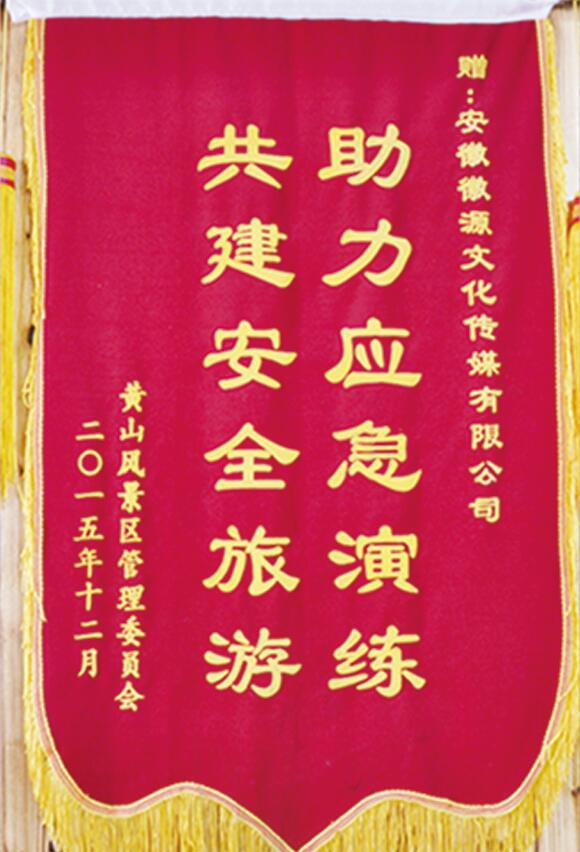 赠：安徽徽源文化传媒有限公司
助力应急演练
共建安全旅游
黄山风景区管理委员会
二〇一五年十二月